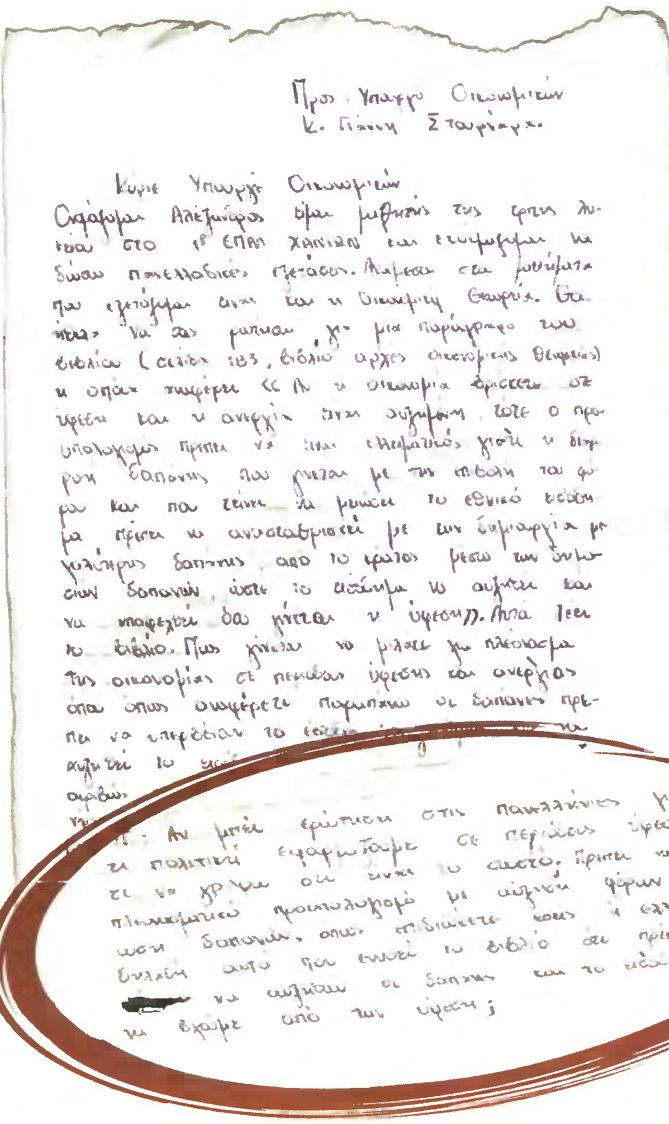 Προς Υπουργο Οικονομικών
κ. Γιάννη Στουρνάρα.
Κυριε Υπουργέ Οικονομικών
Ονομάζομαι Αλέξανδρος είμαι μαθητής της τριτης λυ-
κείου στο 1º ΕΠΑΛ ΧΑΝΙΩΝ και ετοιμάζομαι να
δώσω πανελλαδικές εξετάσεις. Ανάμεσα στα μαθήματα
που εξετάζομαι είναι και η Οικονομική Θεωρία. Θα
ήθελα να σας ρωτησω για μια παράγραφο του
βιβλίου (σελίδα 183, βιβλίο αρχες οικονομικης θεωριας)
η οποία αναφέρει << Αν η οικονομια βρισκετε σε
υφεση και η ανεργία είναι αυξημένη, τότε ο προ-
υπολογισμος πρεπει να είναι ελλειματικός γιατι η διαρ-
ροη δαπανης που γινεται με την επιβολη του φο-
ρου και που τείνει να μειωσει το εθνικό εισοδη-
μα πρεπει να αντισταθμιστεί με την δημιουργία με-
γαλύτερης δαπανης απο το κρατος μεσω των δημο-
σιων δαπανών, ώστε το εισόδημα να αυξηθει και
να καταπολεμηθεί η ύφεση>>. Αυτα λεει
το βιβλιο. Πως γίνεται να μιλατε για πλεόνασμα
της οικονομίας σε περιοδους ύφεσης και ανεργίας
οπου οπως αναφέρετε παραπανω οι δαπανες πρε-
πει να υπερβούν τα έσοδα να
αυξηθεί το
ακριβως
Αν μπεί ερώτηση στις πανελλήνιες
τι πολιτική εφαρμοζουμε σε περιοδους ύφεσ
τι να γράψω οτι ειναι το σωστό. Πρεπει να
πλεονασματικο προυπολογισμό με αύξηση φόρων
ωση δαπανών, οπως επιδιώκετε εσεις η ελλ
δηλαδη αυτο που εννοεί το βιβλίο οτι πρέπ
να αυξησουν οι δαπανες και το εισοδ
να βγουμε απο την υφεση ;